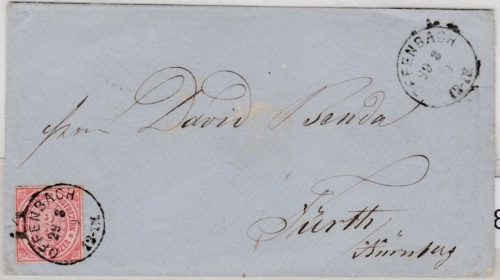 OFFENBACH
29 8
Herrn David Benda
Fürth
Nürnberg
OFFENBACH
29 8